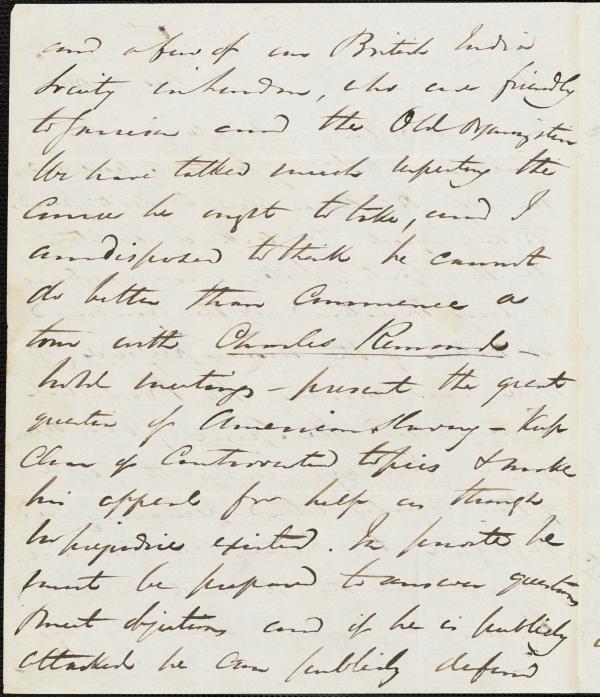 and a few of our British India
Society in London, who are friendly
to Garrison and the Old Organization
We have talked much respecting the
Course he ought to take, and I
am disposed to think he cannot
do better than Commence a
tour with Charles Remond –
hold meetings – present the great
question of American Slavery – Keep
Clear of Controverted topics & make
his appeal for help as though
no prejudice existed. In private he
must be prepared to answer questions
& meet objections and if he is publicly
attacked he can publicly defend